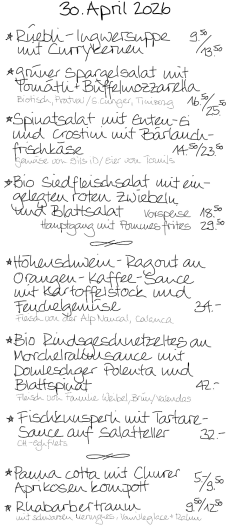 30. April 2026
* Rüebli-Ingwersuppe 9.50
mit Currykernen /13.50
* grüner Spargelsalat mit
Tomätli + Büffelmozzarella
16.50/25.50
* Spinatsalat mit Enten-Ei
und Crostini mit Bärlauch-
frischkäse 14.50/23.50
Gemüse von Sils iD/Eier von Tomils
* Bio Siedfleischsalat mit ein-
gelegten roten Zwiebeln
und Blattsalat Vorspeise 18.50
Hauptgang mit Pommes frites 29.50
* Höhenschwein-Ragout an
Orangen-Kaffee-Sauce
mit Kartoffelstock und
Fenchelgemüse 34.-
Fleisch von der Alp
* Bio Rindsgeschnetzeltes an
Morchelrahmsauce mit
Domleschger Polenta und
Blattspinat 42.-
Fleisch von Familie
* Fischknusperli mit Tartare-
Sauce auf Salatteller 32.-
CH-Eglifilets
* Panna cotta mit Churer
Aprikosenkompott 5/9.50
* Rhabarbertraum 9.50/12.50
mit schwarzen Meringues-Vanilleglace + Rahm